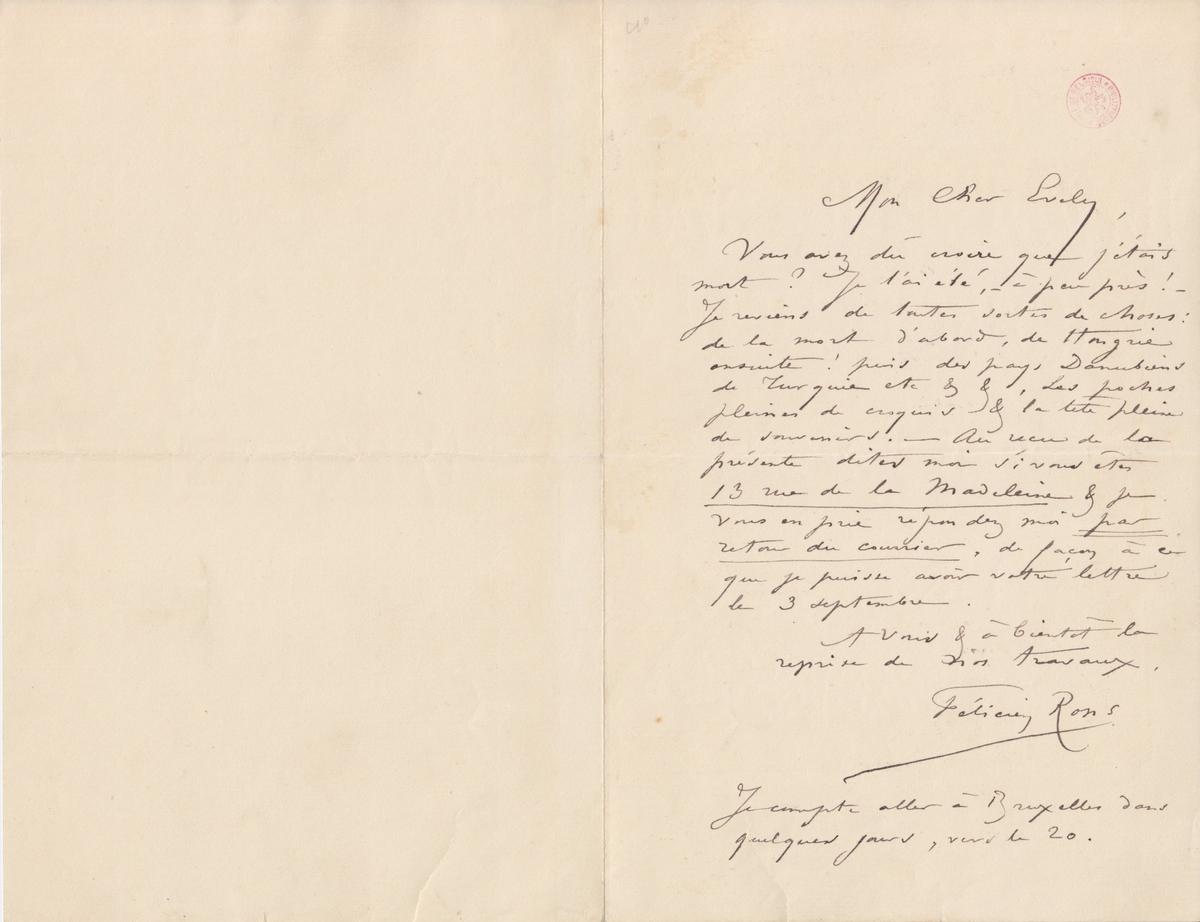 Mon Cher Evely,
Vous avez dû croire que j'étais
mort ? Je l'ai été, – à peu près ! –
Je reviens de toutes sortes de choses :
de la mort d'abord, de Hongrie
ensuite ! puis des pays Danubiens
de Turquie etc & & , les poches
pleines de croquis & la tête pleine
de souvenirs. — Au reçu de la
présente dites moi si vous êtes
13 rue de la Madeleine & je
vous en prie répondez moi par
retour du courrier, de façon à ce
que je puisse avoir votre lettre
le 3 septembre.
A Vous & à bientôt la
reprise de nos travaux.
Félicien Rops
Je compte aller à Bruxelles dans
quelques jours, vers le 20.